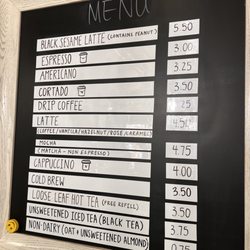 MENU
BLACK SESAME LATTE (CONTAINS PEANUT) 5.50
ESPRESSO 3.00
AMERICANO 3.25
CORTADO 3.50
DRIP COFFEE .25
LATTE
(COFFEE/VANILLA/HAZELNUT/ROSE/CARAMEL)
MOCHA 4.75
(MATCHA - NON ESPRESSO)
CAPPUCCINO 4.00
COLD BREW 3.50
LOOSE LEAF HOT TEA (FREE REFILL) 3.50
UNSWEETENED ICED TEA (BLACK TEA) 3.75
NON-DAIRY (OAT & UNSWEETENED ALMOND) .75